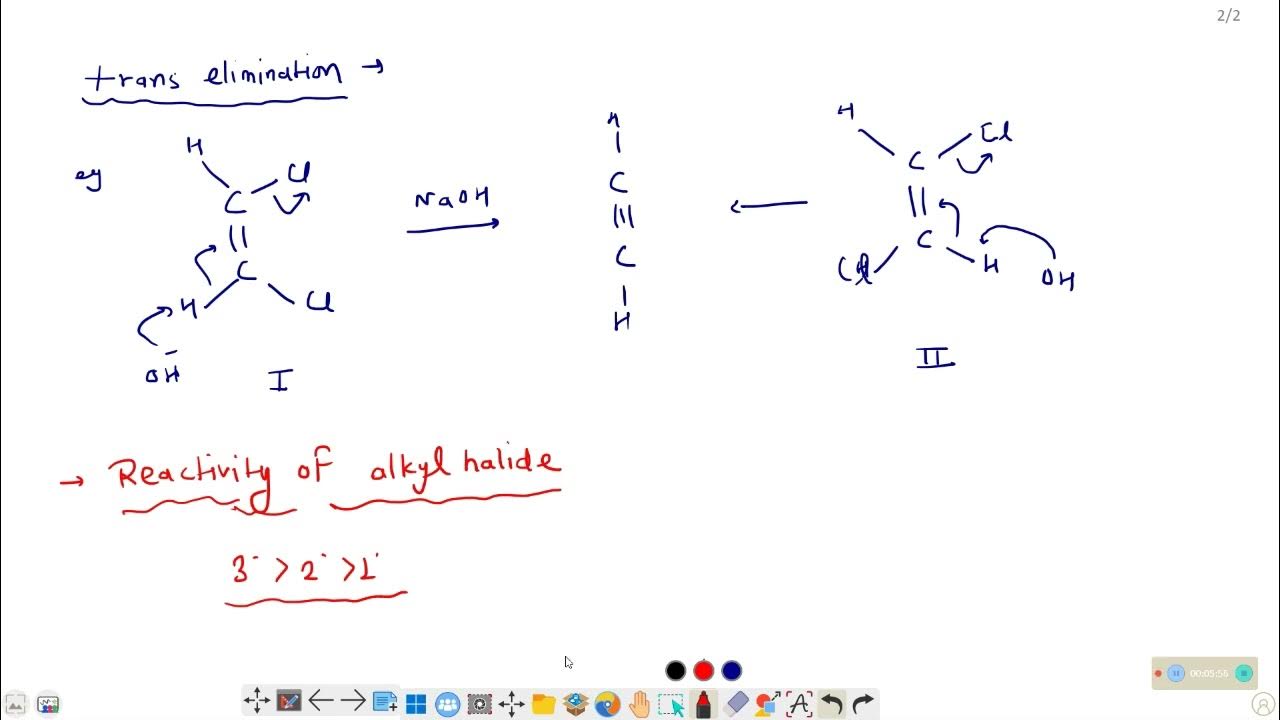 2/2
trans elimination →
eg
H
Cl
C
||
C
H
Cl
OH⁻
I
NaOH
→
H
C
|||
C
H
←
H
Cl
C
||
C
Cl
H
OH
II
→ Reactivity of alkyl halide
3° > 2° > 1°
00:05:56